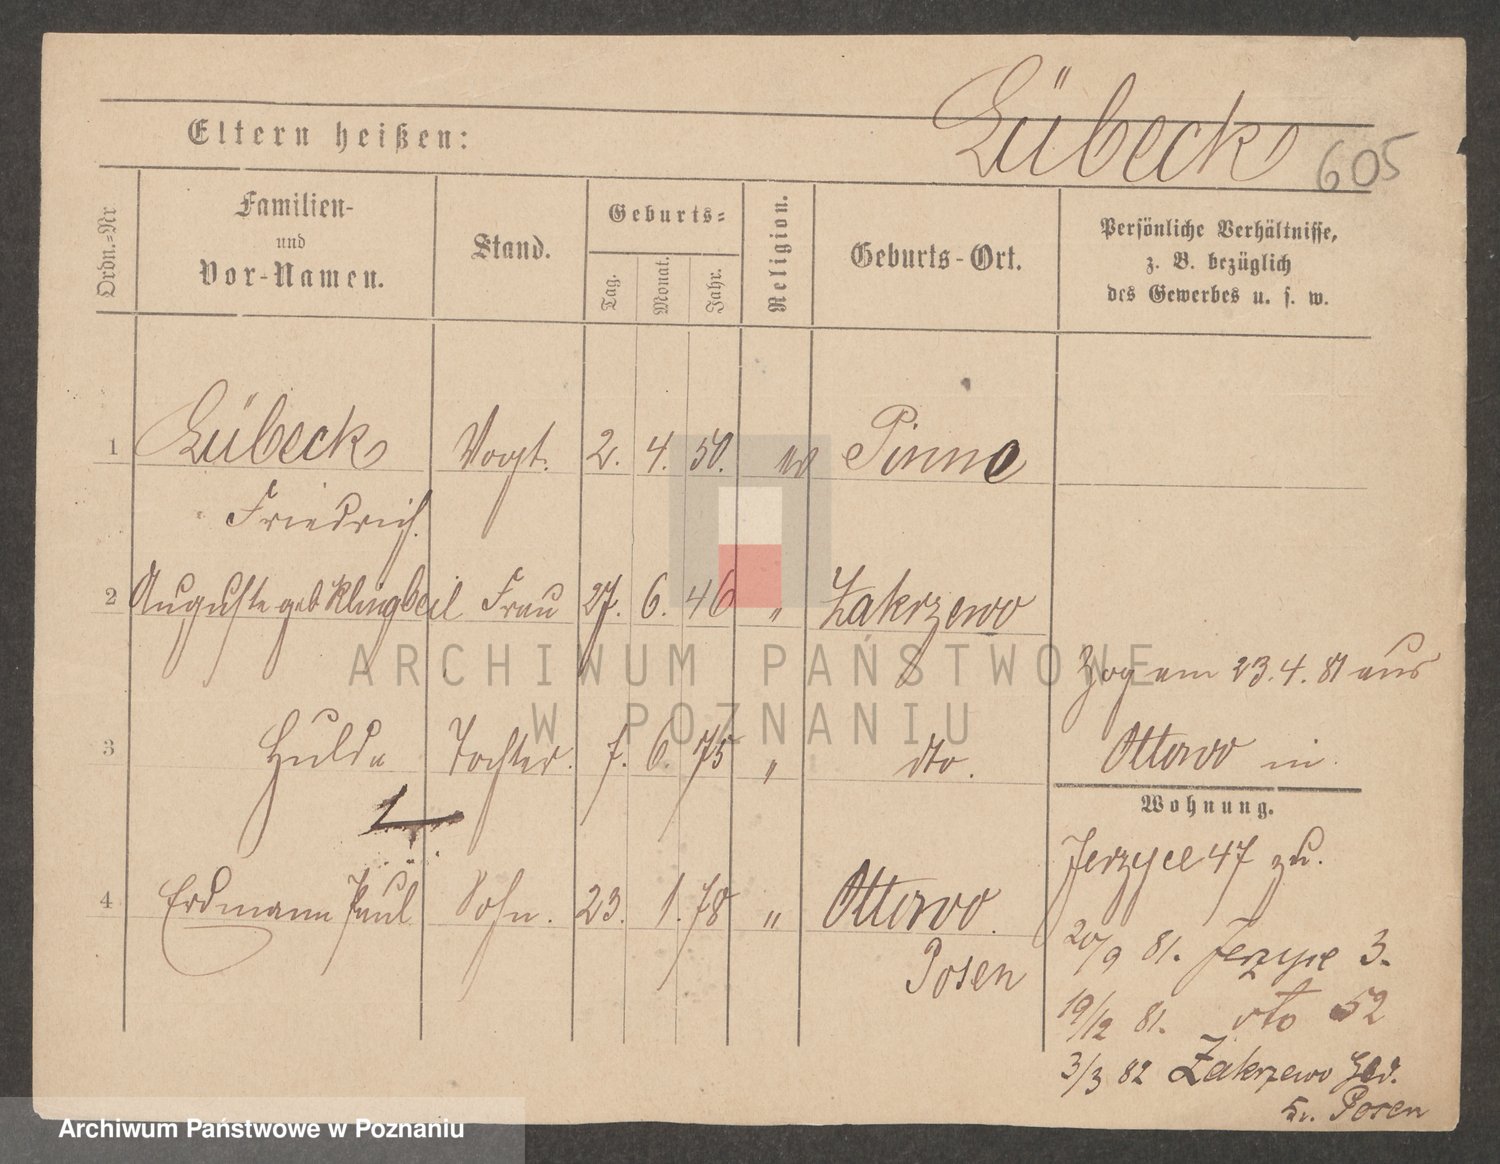 Lübeck
605
Eltern heißen:
Ordn.-Nr
Familien-
und
Vor-Namen.
Stand.
Geburts-
Tag.
Monat.
Jahr.
Religion.
Geburts-Ort.
Persönliche Verhältnisse,
z. B. bezüglich
des Gewerbes u. s. w.
1 Lübeck Vogt. 2. 4. 50. ev Pinne
Friedrich
2 Auguste geb Klingbeil Frau 27. 6. 46 " Zakrzewo
ARCHIWUM PAŃSTWOWE
W POZNANIU
Zog am 23.4.81 aus
3 Hulda Tochter. 7. 6. 75 " dto.
Ottorowo in
Wohnung.
Jerzyce 47 zu.
4 Erdmann Paul Sohn. 23. 1. 78 " Ottorowo
Posen
20/9 81. Jerzyce 3.
19/12 81. dto 52
3/3 82 Zakrzewo
Posen
Archiwum Państwowe w Poznaniu